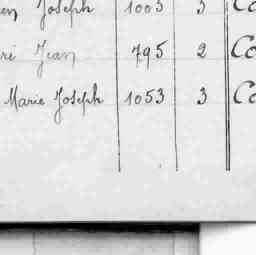 Joseph 1003 3 Co
Jean 795 2 Co
Marie Joseph 1053 3 Co